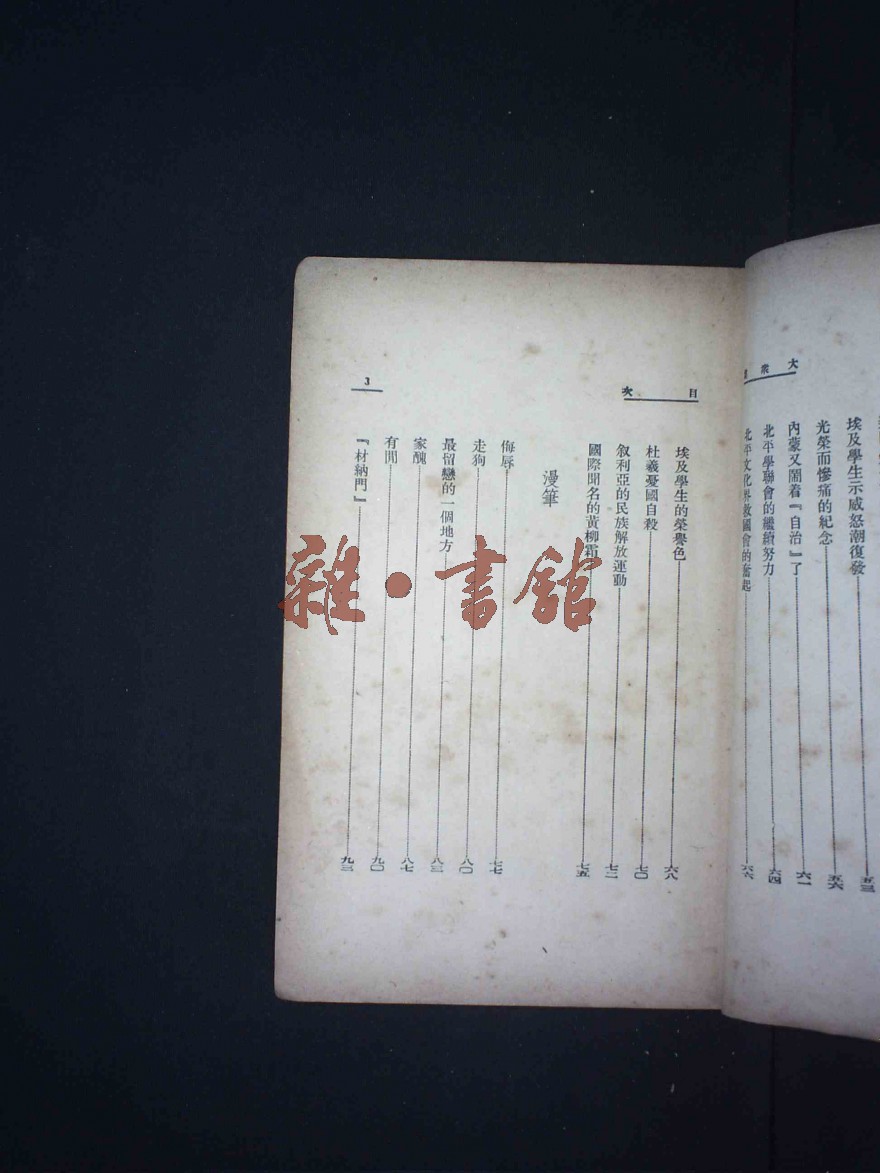 大衆
埃及學生示威怒潮復發 五三
光榮而慘痛的紀念 五六
內蒙又鬧着『自治』了 六一
北平學聯會的繼續努力 六四
北平文化界救國會的奮起 六六
目次
埃及學生的榮譽色 六八
杜羲憂國自殺 七〇
叙利亞的民族解放運動 七二
國際聞名的黃柳霜 七五
漫筆
侮辱 七七
走狗 八〇
最留戀的一個地方 八三
家醜 八七
有閒 九〇
『材納門』 九三
3
雜·書館